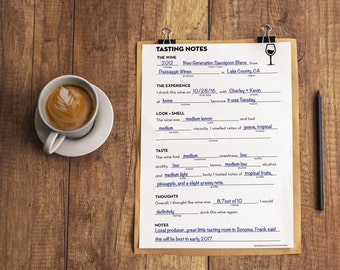 TASTING NOTES
THE WINE
2012 New Generation Sauvignon Blanc from
Passaggio Wines in Lake County, CA
THE EXPERIENCE
I drank this wine on 10/28/16 with Charley + Kevin
at home because it was Tuesday
LOOK + SMELL
The wine was medium lemon and had
medium viscosity. I smelled notes of guava, tropical
TASTE
The wine had medium sweetness, low
acidity, low tannin, medium low alcohol,
and medium light body. I tasted notes of tropical fruits,
pineapple, and a slight grassy note.
THOUGHTS
Overall, I thought the wine was 8.7 out of 10. I would
definitely drink this wine again.
NOTES
Local producer, great little tasting room in Sonoma, Frank said
this will be best in early 2017.